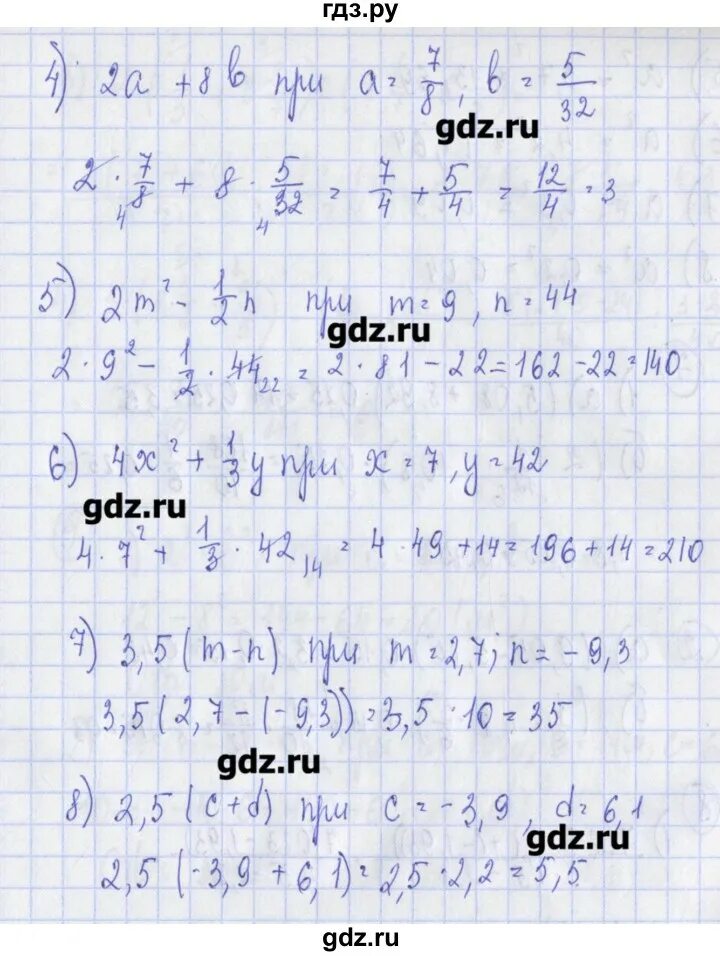 гдз.ру
4) 2a + 8b при a = 7/8, b = 5/32
gdz.ru
2 · 7/8 4 + 8 · 5/32 4 = 7/4 + 5/4 = 12/4 = 3
5) 2m² - 1/2 n при m = 9, n = 44
gdz.ru
2 · 9² - 1/2 · 44 22 = 2 · 81 - 22 = 162 - 22 = 140
6) 4x² + 1/3 y при x = 7, y = 42
gdz.ru
4 · 7² + 1/3 · 42 14 = 4 · 49 + 14 = 196 + 14 = 210
7) 3,5 (m - n) при m = 2,7; n = - 9,3
3,5 (2,7 - (- 9,3)) = 3,5 · 10 = 35
gdz.ru
8) 2,5 (c + d) при c = - 3,9, d = 6,1
gdz.ru
2,5 (-3,9 + 6,1) = 2,5 · 2,2 = 5,5
gdz.ru